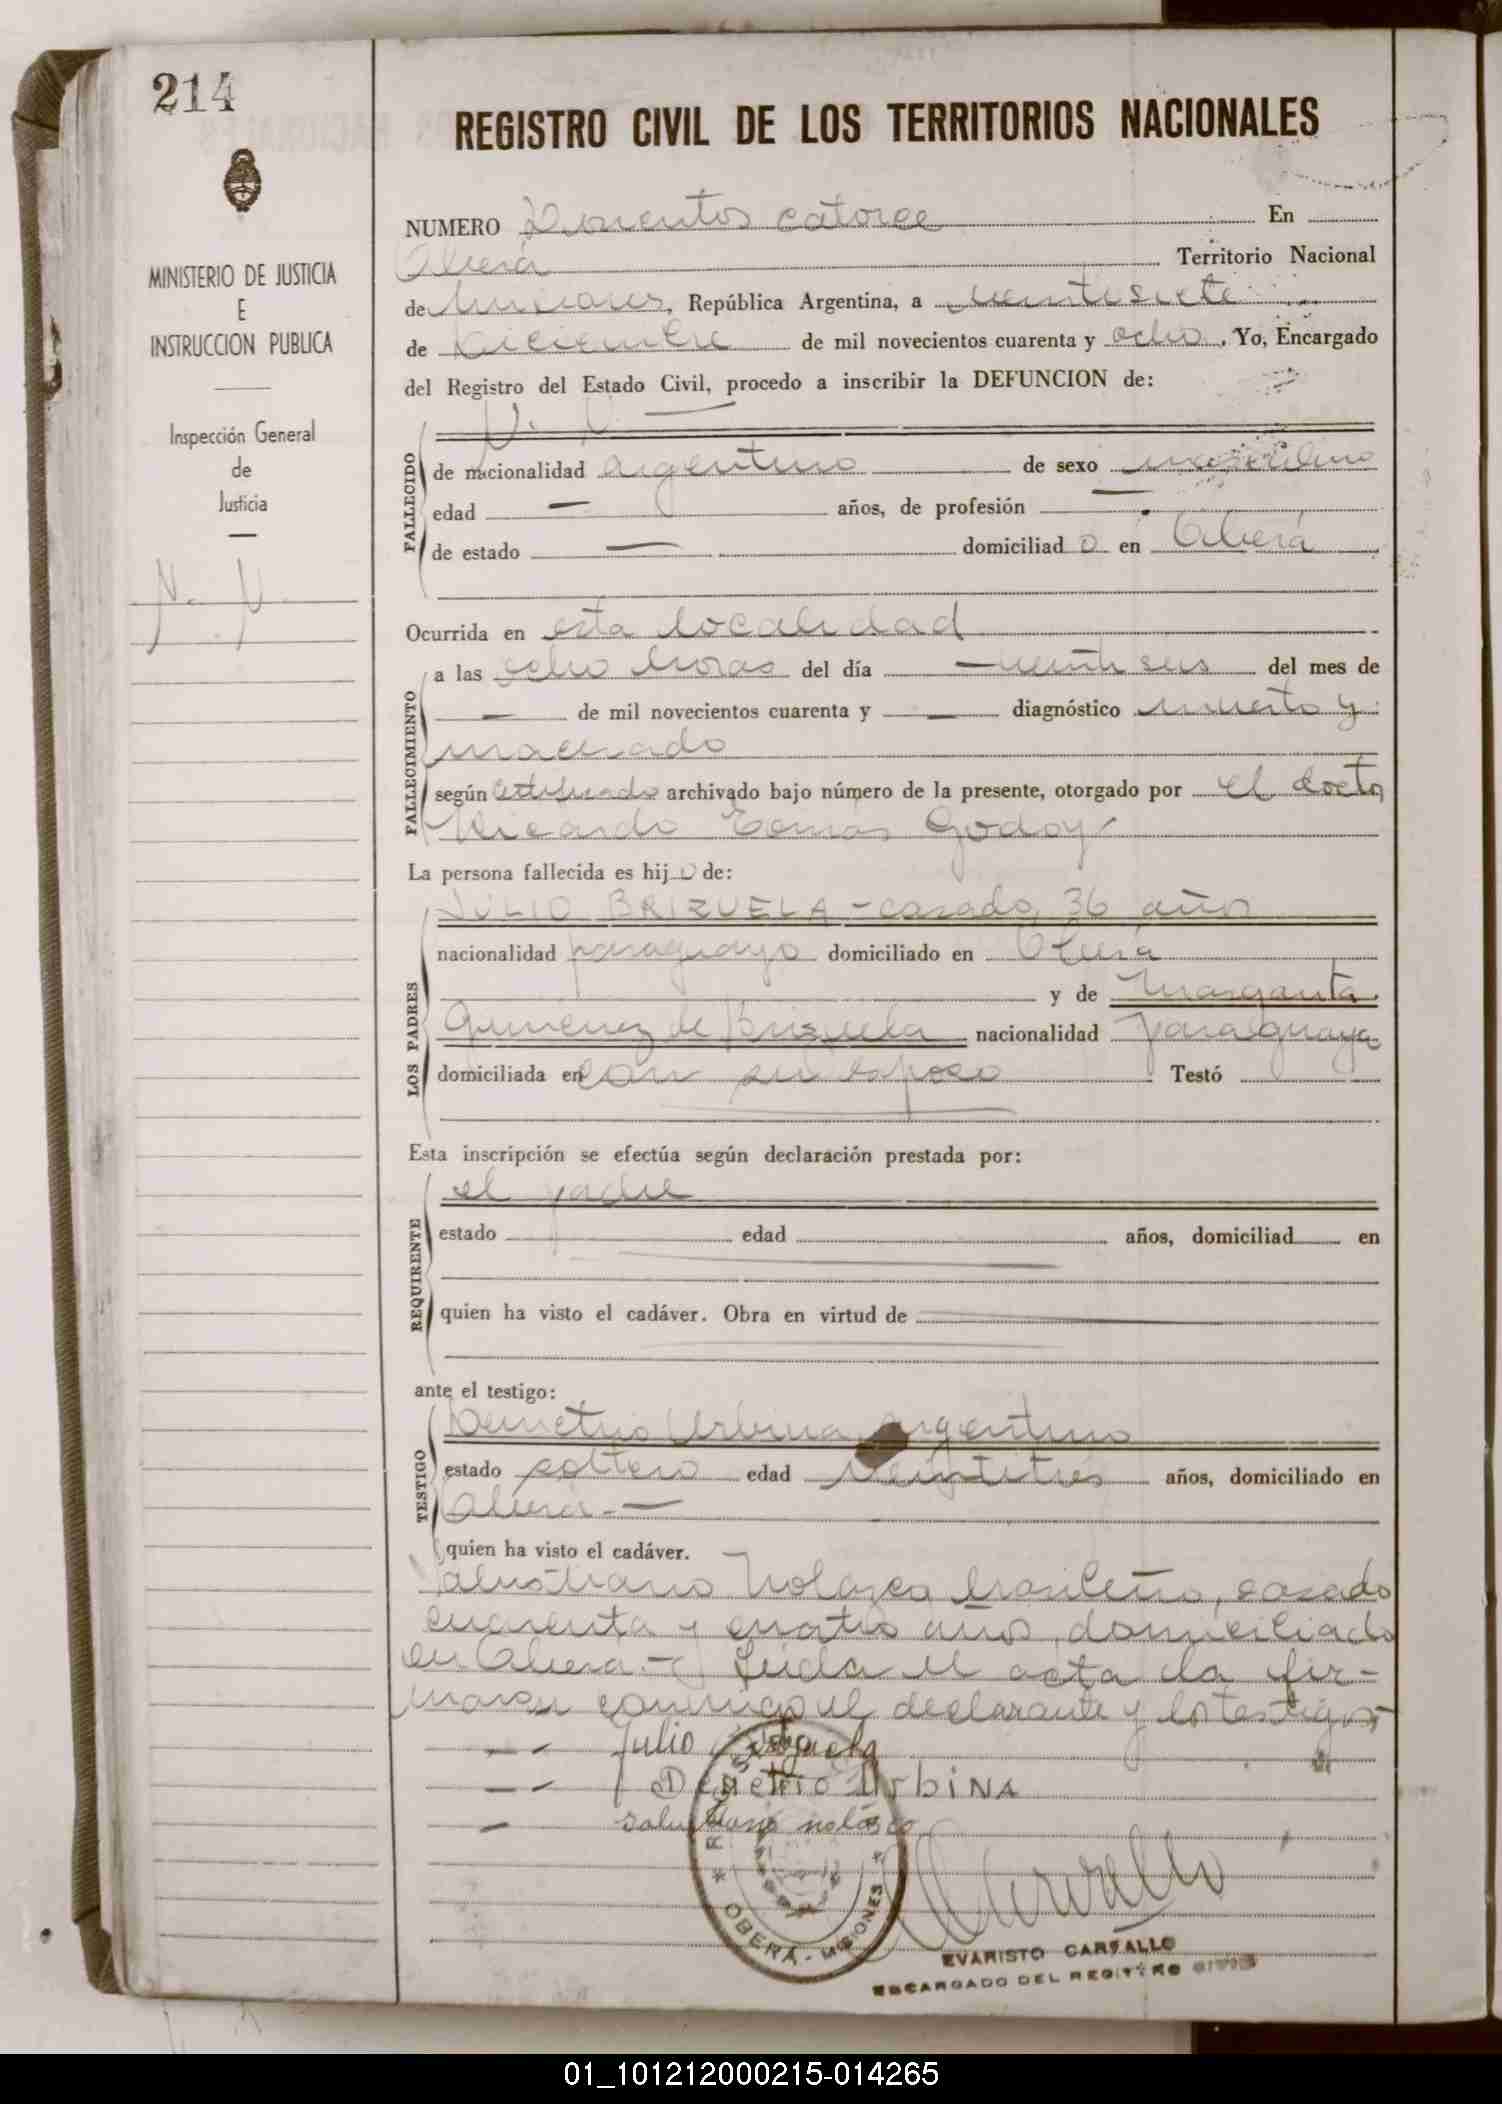 214
REGISTRO CIVIL DE LOS TERRITORIOS NACIONALES
MINISTERIO DE JUSTICIA
E
INSTRUCCION PUBLICA
Inspección General
de
Justicia
N. N.
N. N.
NUMERO Doscientos catorce En
Oberá Territorio Nacional
de Misiones, República Argentina, a veintisiete
de Diciembre de mil novecientos cuarenta y ocho, Yo, Encargado
del Registro del Estado Civil, procedo a inscribir la DEFUNCION de:
N. N. —
FALLECIDO
de nacionalidad argentino de sexo masculino
edad — años, de profesión —
de estado — domiciliado en Oberá
Ocurrida en esta localidad
FALLECIMIENTO
a las ocho horas del día — veintiseis del mes de
— de mil novecientos cuarenta y — diagnóstico muerto y
macerado
según certificado archivado bajo número de la presente, otorgado por el doctor
Ricardo Tomás Godoy
La persona fallecida es hijo de:
LOS PADRES
JULIO BRIZUELA - casado, 36 años
nacionalidad paraguayo domiciliado en Oberá
y de Margarita
Gimenez de Brizuela nacionalidad paraguaya
domiciliada en con su esposo Testó
Esta inscripción se efectúa según declaración prestada por:
REQUIRENTE
el padre
estado edad años, domiciliad en
quien ha visto el cadáver. Obra en virtud de
ante el testigo:
TESTIGO
Demetrio Urbina argentino
estado soltero edad veintitres años, domiciliado en
Oberá. —
quien ha visto el cadáver.
Salustiano Nolazco brasileño, casado
cuarenta y cuatro años, domiciliado
en Oberá. - Leida el acta la fir-
maron conmigo el declarante y los testigos -
Julio Brizuela
Demetrio Urbina
Salustiano nolasco
Carvallo
REGISTRO
OBERÁ - MISIONES
EVARISTO CARVALLO
ENCARGADO DEL REGISTRO CIVIL
01_101212000215-014265